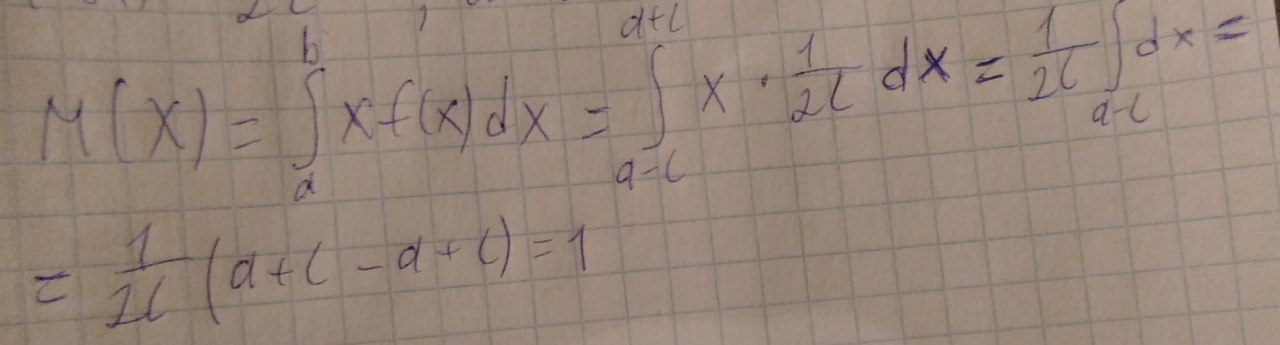 M(X) = ∫_a^b x f(x) dx = ∫_{a-l}^{a+l} x · 1/2l dx = 1/2l ∫_{a-l} dx =
= 1/2l (a + l - a + l) = 1